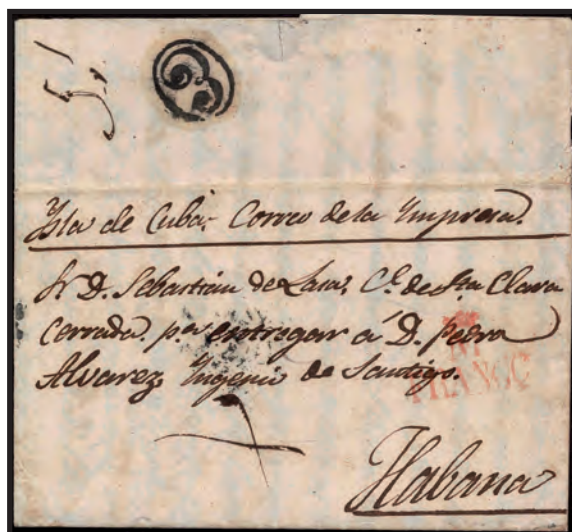 3
Isla de Cuba. Correo de la Empresa.
Sr D. Sebastián de Lasa, C.e de Sta Clara
Cerrada. p.a entregar á D. Pedro
Alvarez, Ingenio de Santiago.
FRANCO
Habana